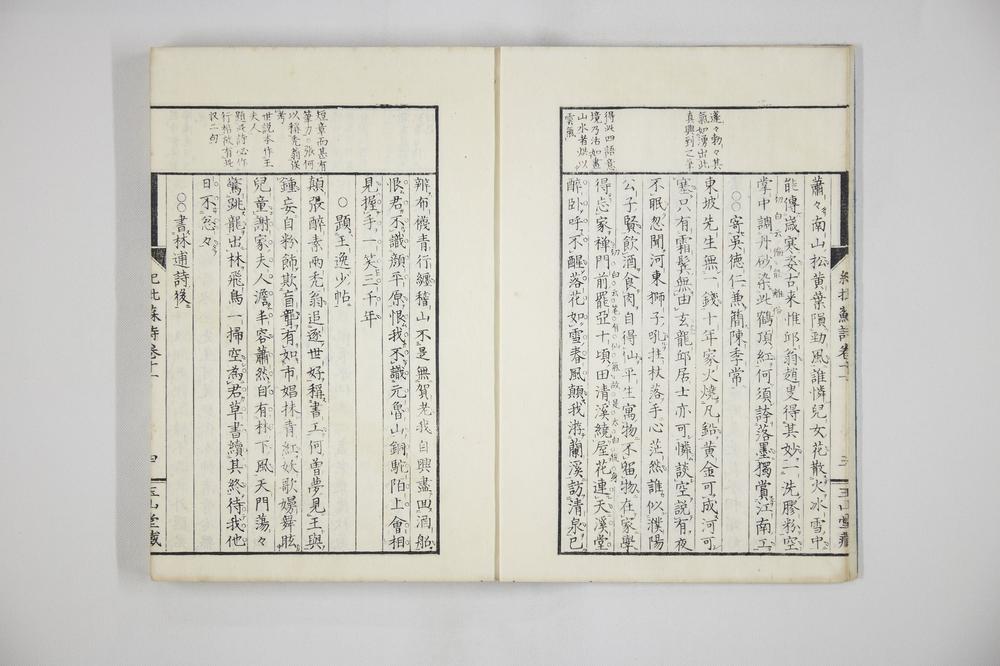 蓬々勃々其
氣如湧出此
真興到之筆
得此四語意
境乃活如畫
山水者烘以
雲氣
蕭々南山松黃葉隕勁風誰憐兒女花散火冰雪中
能傳歲寒姿古來惟邱翁趙叟得其妙一洗膠粉空
掌中調丹砂染此鶴頂紅何須誇落墨獨賞江南工
切白云脩能離俗
○○寄吳德仁兼簡陳季常
東坡先生無一錢十年家火燒凡鉛黃金可成河可
塞只有霜鬢無由玄龍邱居士亦可憐談空說有夜
不眠忽聞河東獅子吼拄杖落手心茫然誰似濮陽
公子賢飲酒食肉自得仙平生寓物不留物在家學
得忘家禪門前罷亞十頃田清溪繞屋花連天溪堂
醉卧呼不醒落花如雪春風顛我游蘭溪訪清泉已
紀批蘇詩卷十一
三
玉山堂藏
短章而甚有
筆力○張何
以稱禿翁俟
考
世說本作王
夫人
題此詩必作
行楷故有此
收二句
辦布襪青行纏稽山不是無賀老我自興盡回酒船
恨君不識顏平原恨我不識元魯山銅駝陌上會相
見握手一笑三千年
○題王逸少帖
顛張醉素兩禿翁追逐世好稱書工何曾夢見王與
鍾妄自粉飾欺盲聾有如市娼抹青紅妖歌嫚舞眩
兒童謝家夫人澹丰容蕭然自有林下風天門蕩々
驚跳龍出林飛鳥一掃空為君草書續其終待我他
日不怱々
○○書林逋詩後
紀批蘇詩卷十一
四
玉山堂藏